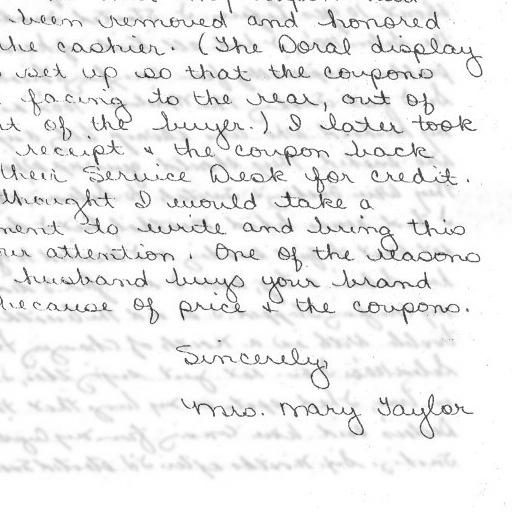 been removed and honored
the cashier. (The Doral display
set up so that the coupons
facing to the rear, out of
of the buyer.) I later took
receipt & the coupon back
their Service Desk for credit.
thought I would take a
to write and bring this
attention. One of the reasons
husband buys your brand
because of price & the coupons.
Sincerely,
Mrs. Mary Taylor